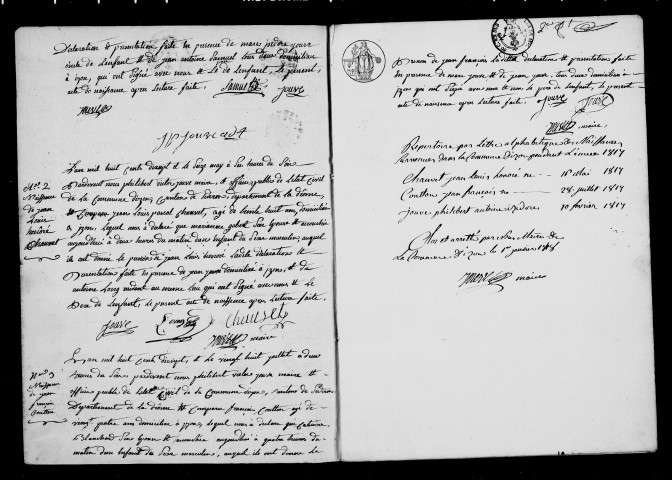 Declaration & presentation faite en presence de marc isidore jouve
oncle de l'enfant & de jean antoine Samuel tous deux domiciliés
à izon, qui ont signé avec nous & le de l'enfant, le present
acte de naissance après lecture faite. Samuel jouve
jouve
jp jouve adt
L'an mil huit cents dix sept & le Seize may à Six heures du Soir
Pardevant nous philibert victor jouve maire & officier public de l'état Civil
de la Commune d'izon, Canton de Sederon, departement de la drome
est Comparu jean Louis pascal Chauvet, agé de trente huit ans domicilié
à izon, lequel nous a declaré que marianne gobert son epouse est accouchée
aujourdhui à deux heures du matin d'un enfant du Sexe masculin, auquel
ils ont donné le prenom de jean Louis honoré Ladite declaration &
Presentation faite en presence de jean jouve domicilié à izon, & de
antoine Long du même lieu qui ont signé avec nous & le
Pere de l'enfant, le present acte de naissance après Lecture faite.
N.° 2
Naissance
de jean
Louis
honoré
Chauvet
jouve Long Chauvet
jouve maire
L'an mil huit cents dix sept & le vingt huit juillet à deux
heures du Soir pardevant nous philibert victor jouve maire &
officier public de l'état Civil de la Commune d'izon, Canton de Sederon
Departement de la drome est Comparu françois Coutton agé de
vingt quatre ans domicilié à izon, lequel nous a declaré que Catherine
Blanchard Son epouse est accouchée aujourdhui à quatre heures du
matin d'un enfant du Sexe masculin, auquel ils ont donné le
N.° 3
Naissance
de jean
françois
Coutton
Prenom de jean françois Ladite declaration & presentation faite
en presence de marc jouve & de jean jouve, tous deux domiciliés à
izon qui ont signé avec nous & non le pere de l'enfant, le present
acte de naissance après lecture faite. jouve jouve
jouve maire
Repertoire par Lettre alphabetique des Naissances
Survenues dans la Commune d'izon pendant l'année 1817
Chauvet jean louis honoré né 16 mai 1817
Coutton jean françois né 28 juillet 1817
jouve philibert antoine isidore 10 fevrier 1817
Clos et arretté par nous Maire de
La Commune d'izon le 1er janvier 1818
jouve maire